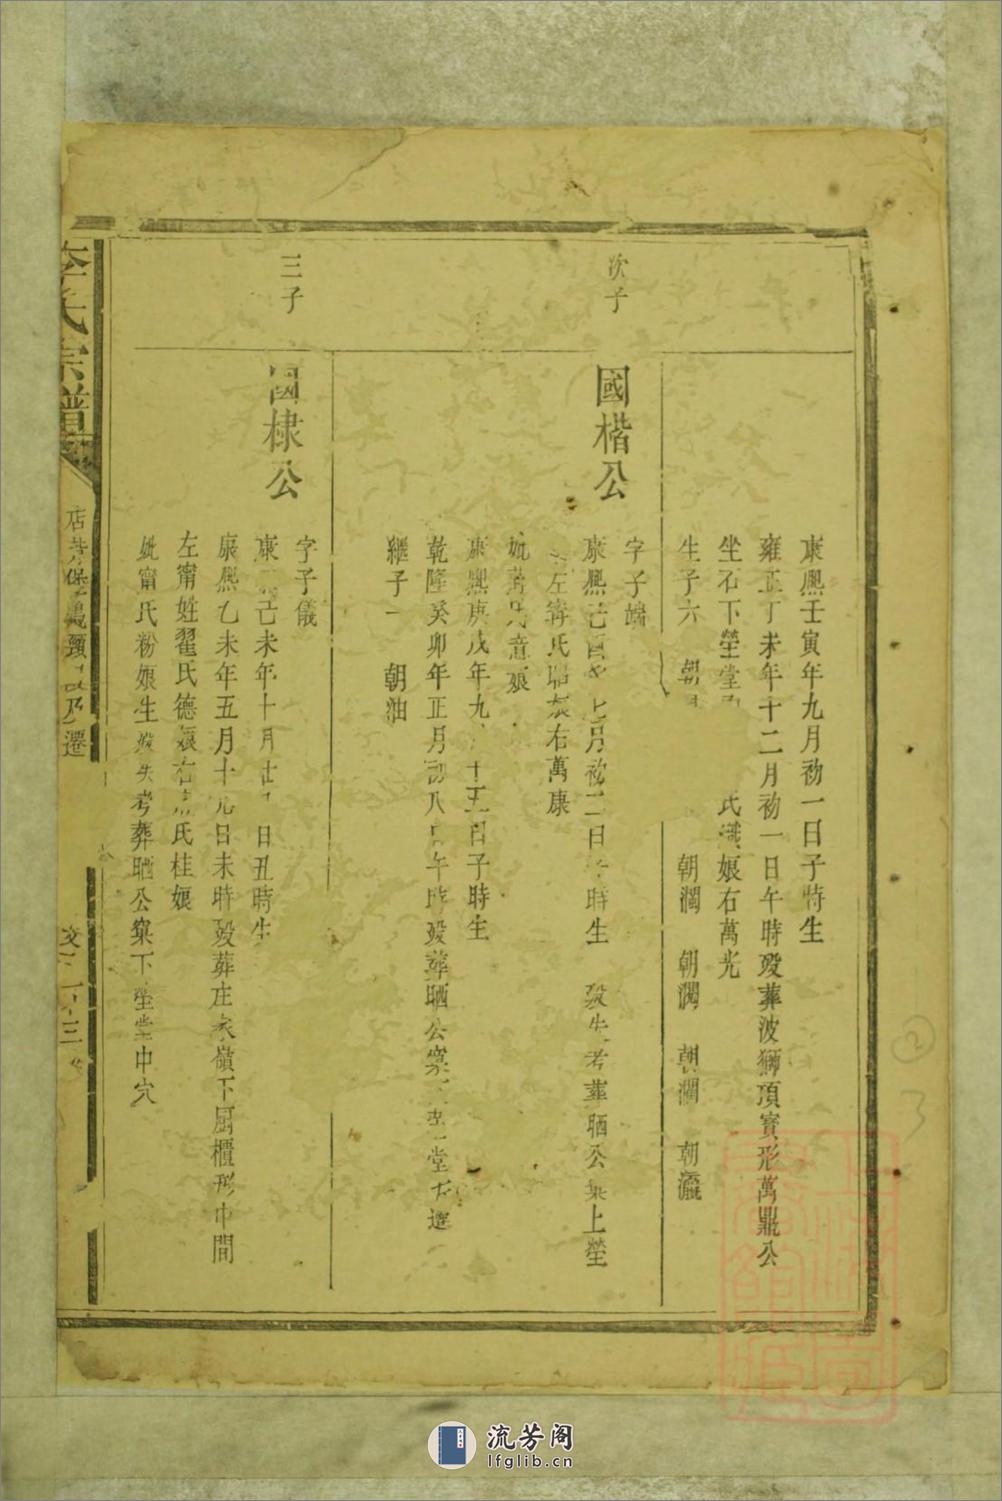 康熙壬寅年九月初一日子時生
雍正丁未年十二月初一日午時歿葬波獅頂寳形萬鼎公
坐右下塋堂 氏 娘右萬光
生子六 朝 朝瀾 朝濶 朝瀾 朝灑
次子
國楷公
字子端
康熙己酉年七月初二日 時生 歿失考葬晒公窠上塋
左甯氏 右萬康
妣萬氏意娘
康熙庚戌年九 十五日子時生
乾隆癸卯年正月初八日午時歿葬晒公窠 堂 遷
繼子一 朝油
三子
國棣公
字子儀
康 己未年十月 日丑時生
康熙乙未年五月十九日未時歿葬庄 嶺下屈櫃形中間
左甯姓翟氏德娘右 氏桂娘
妣甯氏粉娘生歿失考葬晒公窠下塋堂中穴
李氏宗譜
店 保 頸 遷
三
② 3
上海圖書館藏
流芳阁
lfglib.cn